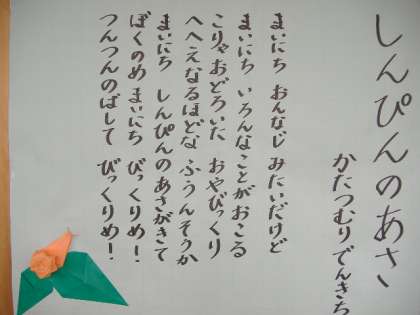 しんぴんのあさ
かたつむりでんきち
まいにち おんなじ みたいだけど
まいにち いろんなことがおこる
こりゃおどろいた おやびっくり
へへえなるほどな ふうんそうか
まいにち しんぴんのあさがきて
ぼくのめ まいにち びっくりめ!
つんつんのばして びっくりめ!